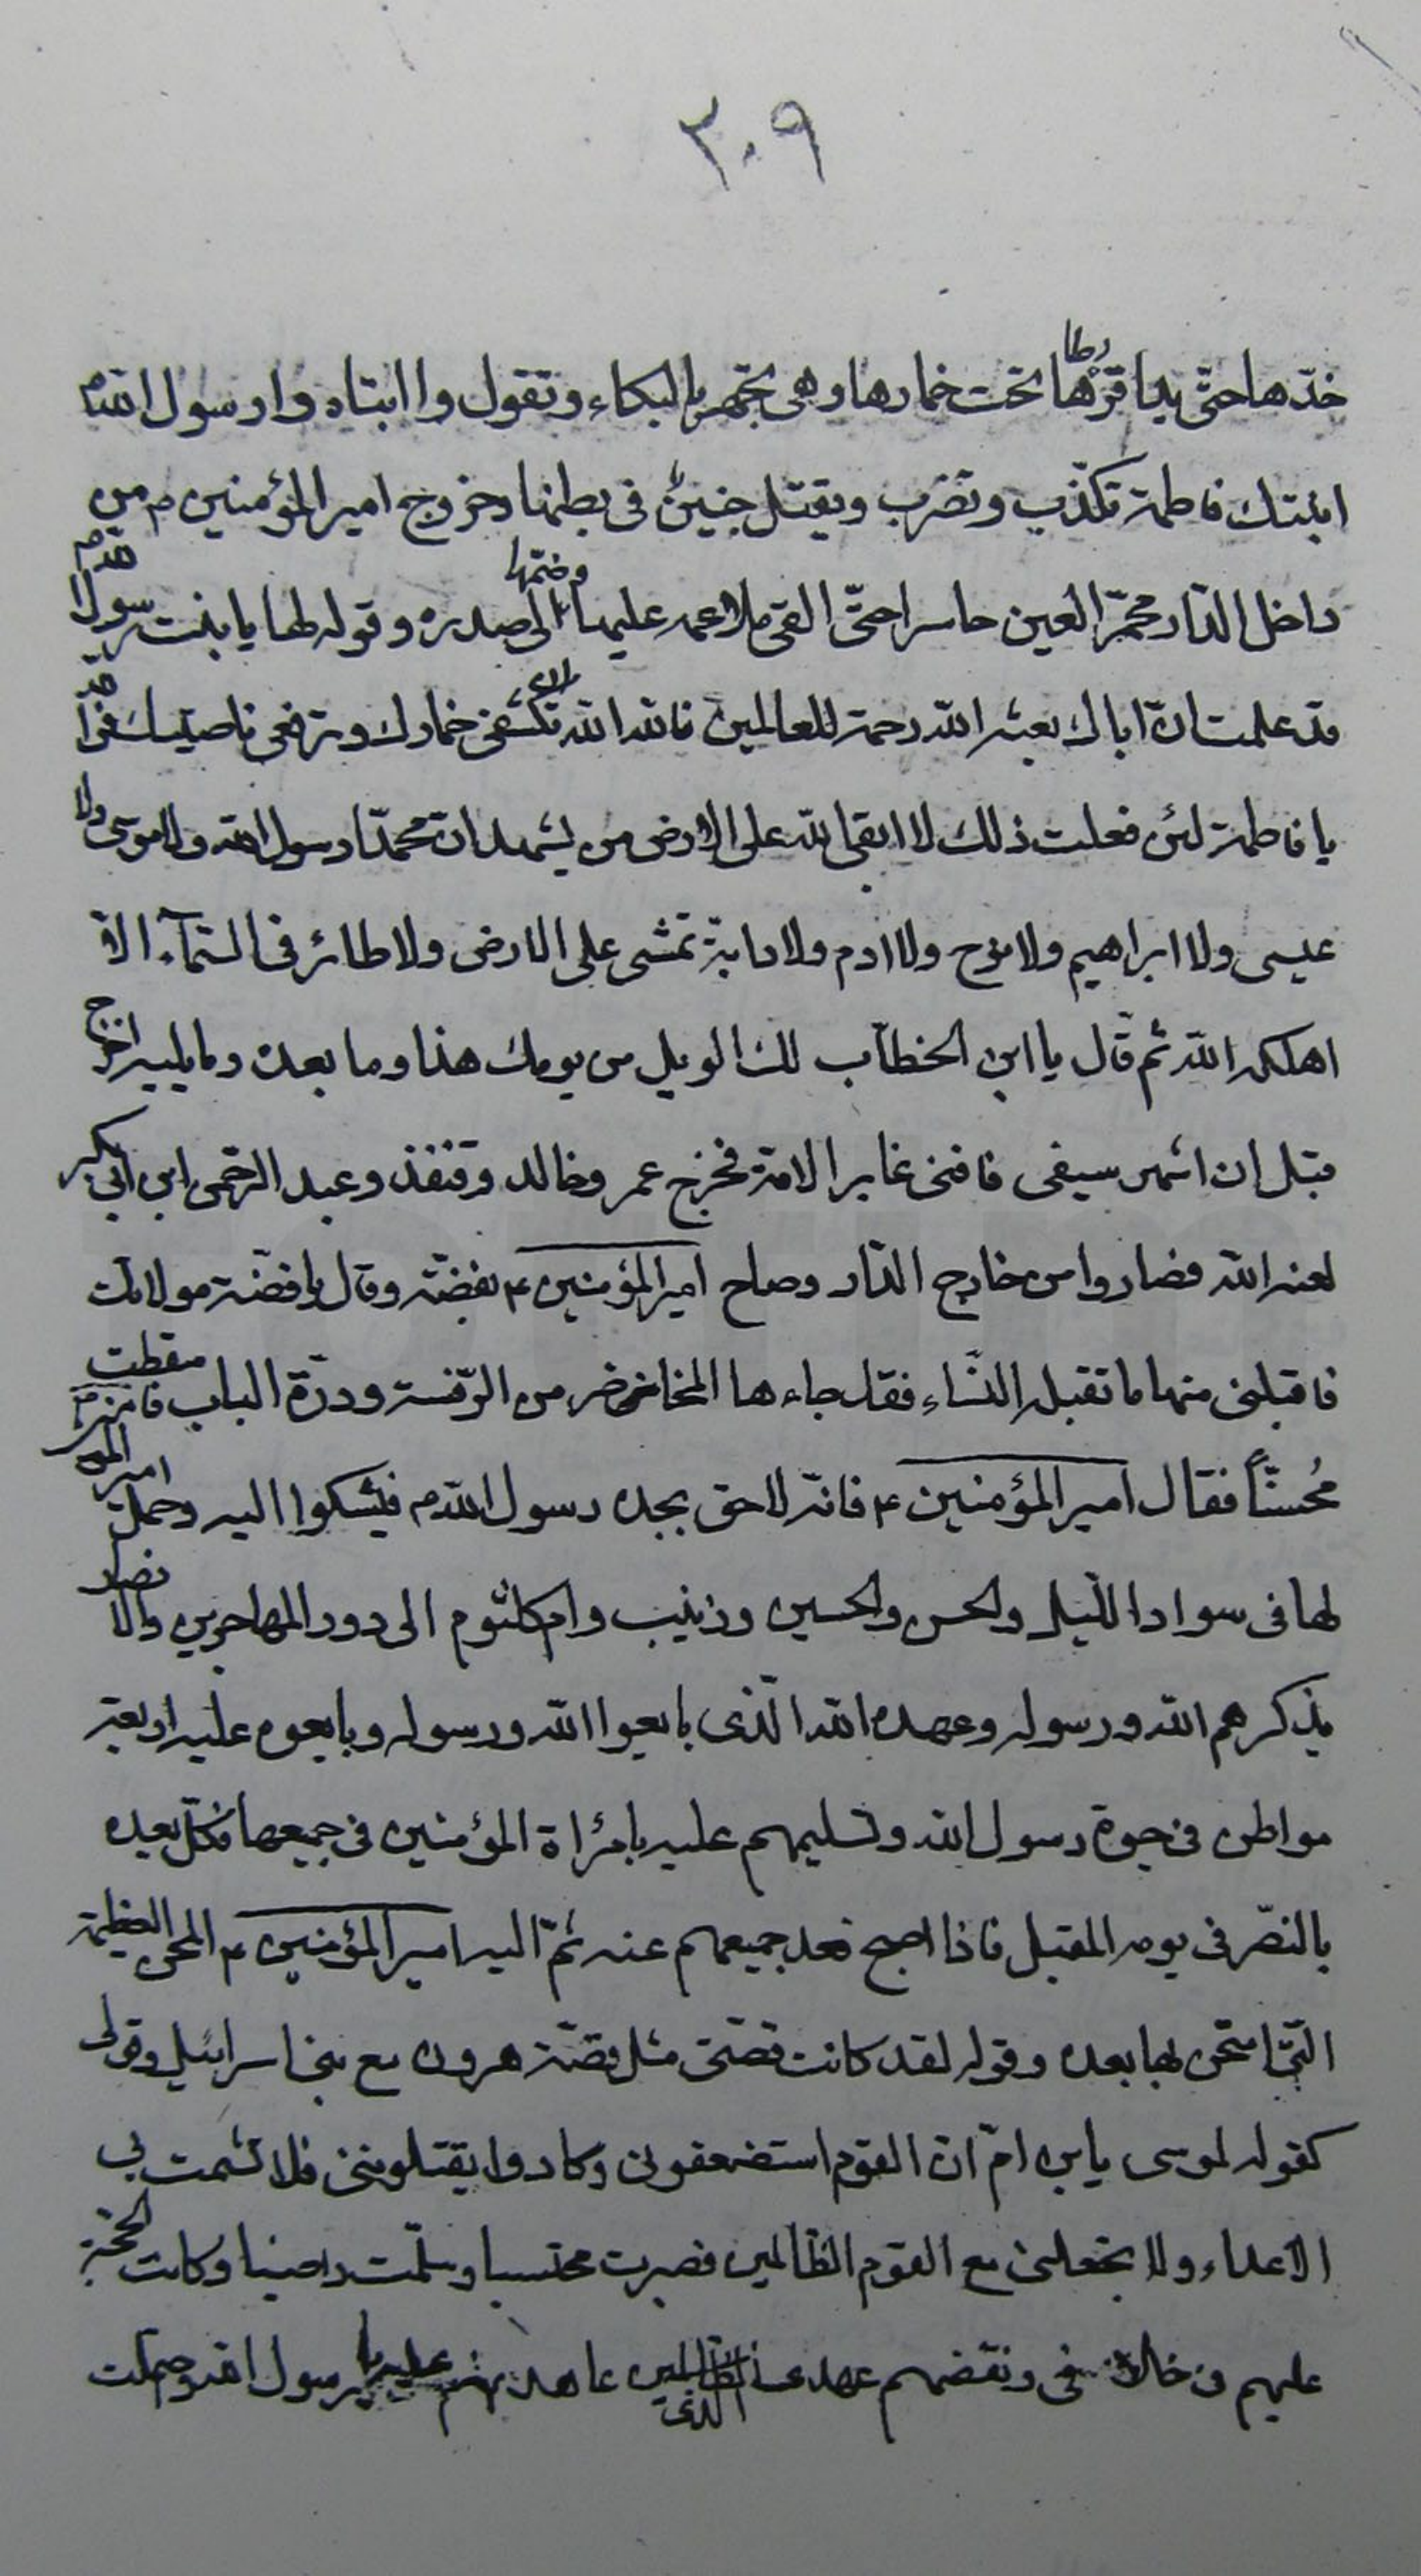 ٣٠٩
خدّها حتّى بدا قرّها قرطا تحت خمارها وهى تجهر بالبكاء وتقول وا ابتاه وا رسول اللهم
ابنتك فاطمة تكذّب وتضرب ويقتل جنين فى بطنها وخروج امير المؤمنين م من
داخل الدّار محمرّ العين حاسرا حتّى القى ملاءمه عليها وضمّها الى صدره وقوله لها يا بنت رسول اللهم قد
قد علمت ان اباك بعثه الله رحمة للعالمين فالله الله ان تكشفى خمارك وترفعى ناصيتك فوالله
يا فاطمة لئن فعلت ذلك لا ابقى الله على الارض من يشهد ان محمدّا رسول الله ولا موسى ولا
عيسى ولا ابراهيم ولا نوح ولا ادم ولا دابة تمشى على الارض ولا طائر فى السّمآء الا
اهلكه الله ثم قال يا ابن الخطآب لك الويل من يومك هذا وما بعده وما يليه اخرج
قبل ان اشهر سيفى فافنى غابر الامة فخرج عمر وخالد وقنفذ وعبد الرحمن ابن ابى بكر
لعنه الله فصاروا من خارج الدّار وصاح امير المؤمنين ع بفضّة وقال يا فضّة مولاتك
فاقبلى منها ما تقبله النسّاء فقد جاءها المخاض من الرّفسة وردّة الباب فاسقطت
مُحسناً فقال امير المؤمنين ع فانه لاحق بجده رسول الله م فيشكوا اليه وحمل امير المو
لها فى سواد اللّيل والحسن والحسين وزينب وام كلثوم الى دور المهاجرين والانصار
يذكرهم الله ورسوله وعهده الله الّذى بايعوا الله ورسوله وبايعوه عليه اربعة
مواطن فى حيوة رسول الله وتسليمهم عليه بامراة المؤمنين فى جميعها فكلّ يعده
بالنصّر فى يومه المقبل فاذا اصبح قعد جميعهم عنه ثمّ اليه امير المؤمنين ع المحن العظيمة
التّى امتحن بها بعده وقوله لقد كانت قصتى مثل قصّة هرون مع بنى اسرائيل وقولى
كقوله لموسى يابن امّ ان القوم استضعفونى وكادوا يقتلوننى فلا تشمت بى
الاعداء ولا تجعلنى مع القوم الظالمين فصبرت محتسبا وسلّمت راضيا وكانت الحجّة
عليهم فى خلافى ونقضهم عهدى الذى عاهدتهم عليه يا رسول الله وحملت